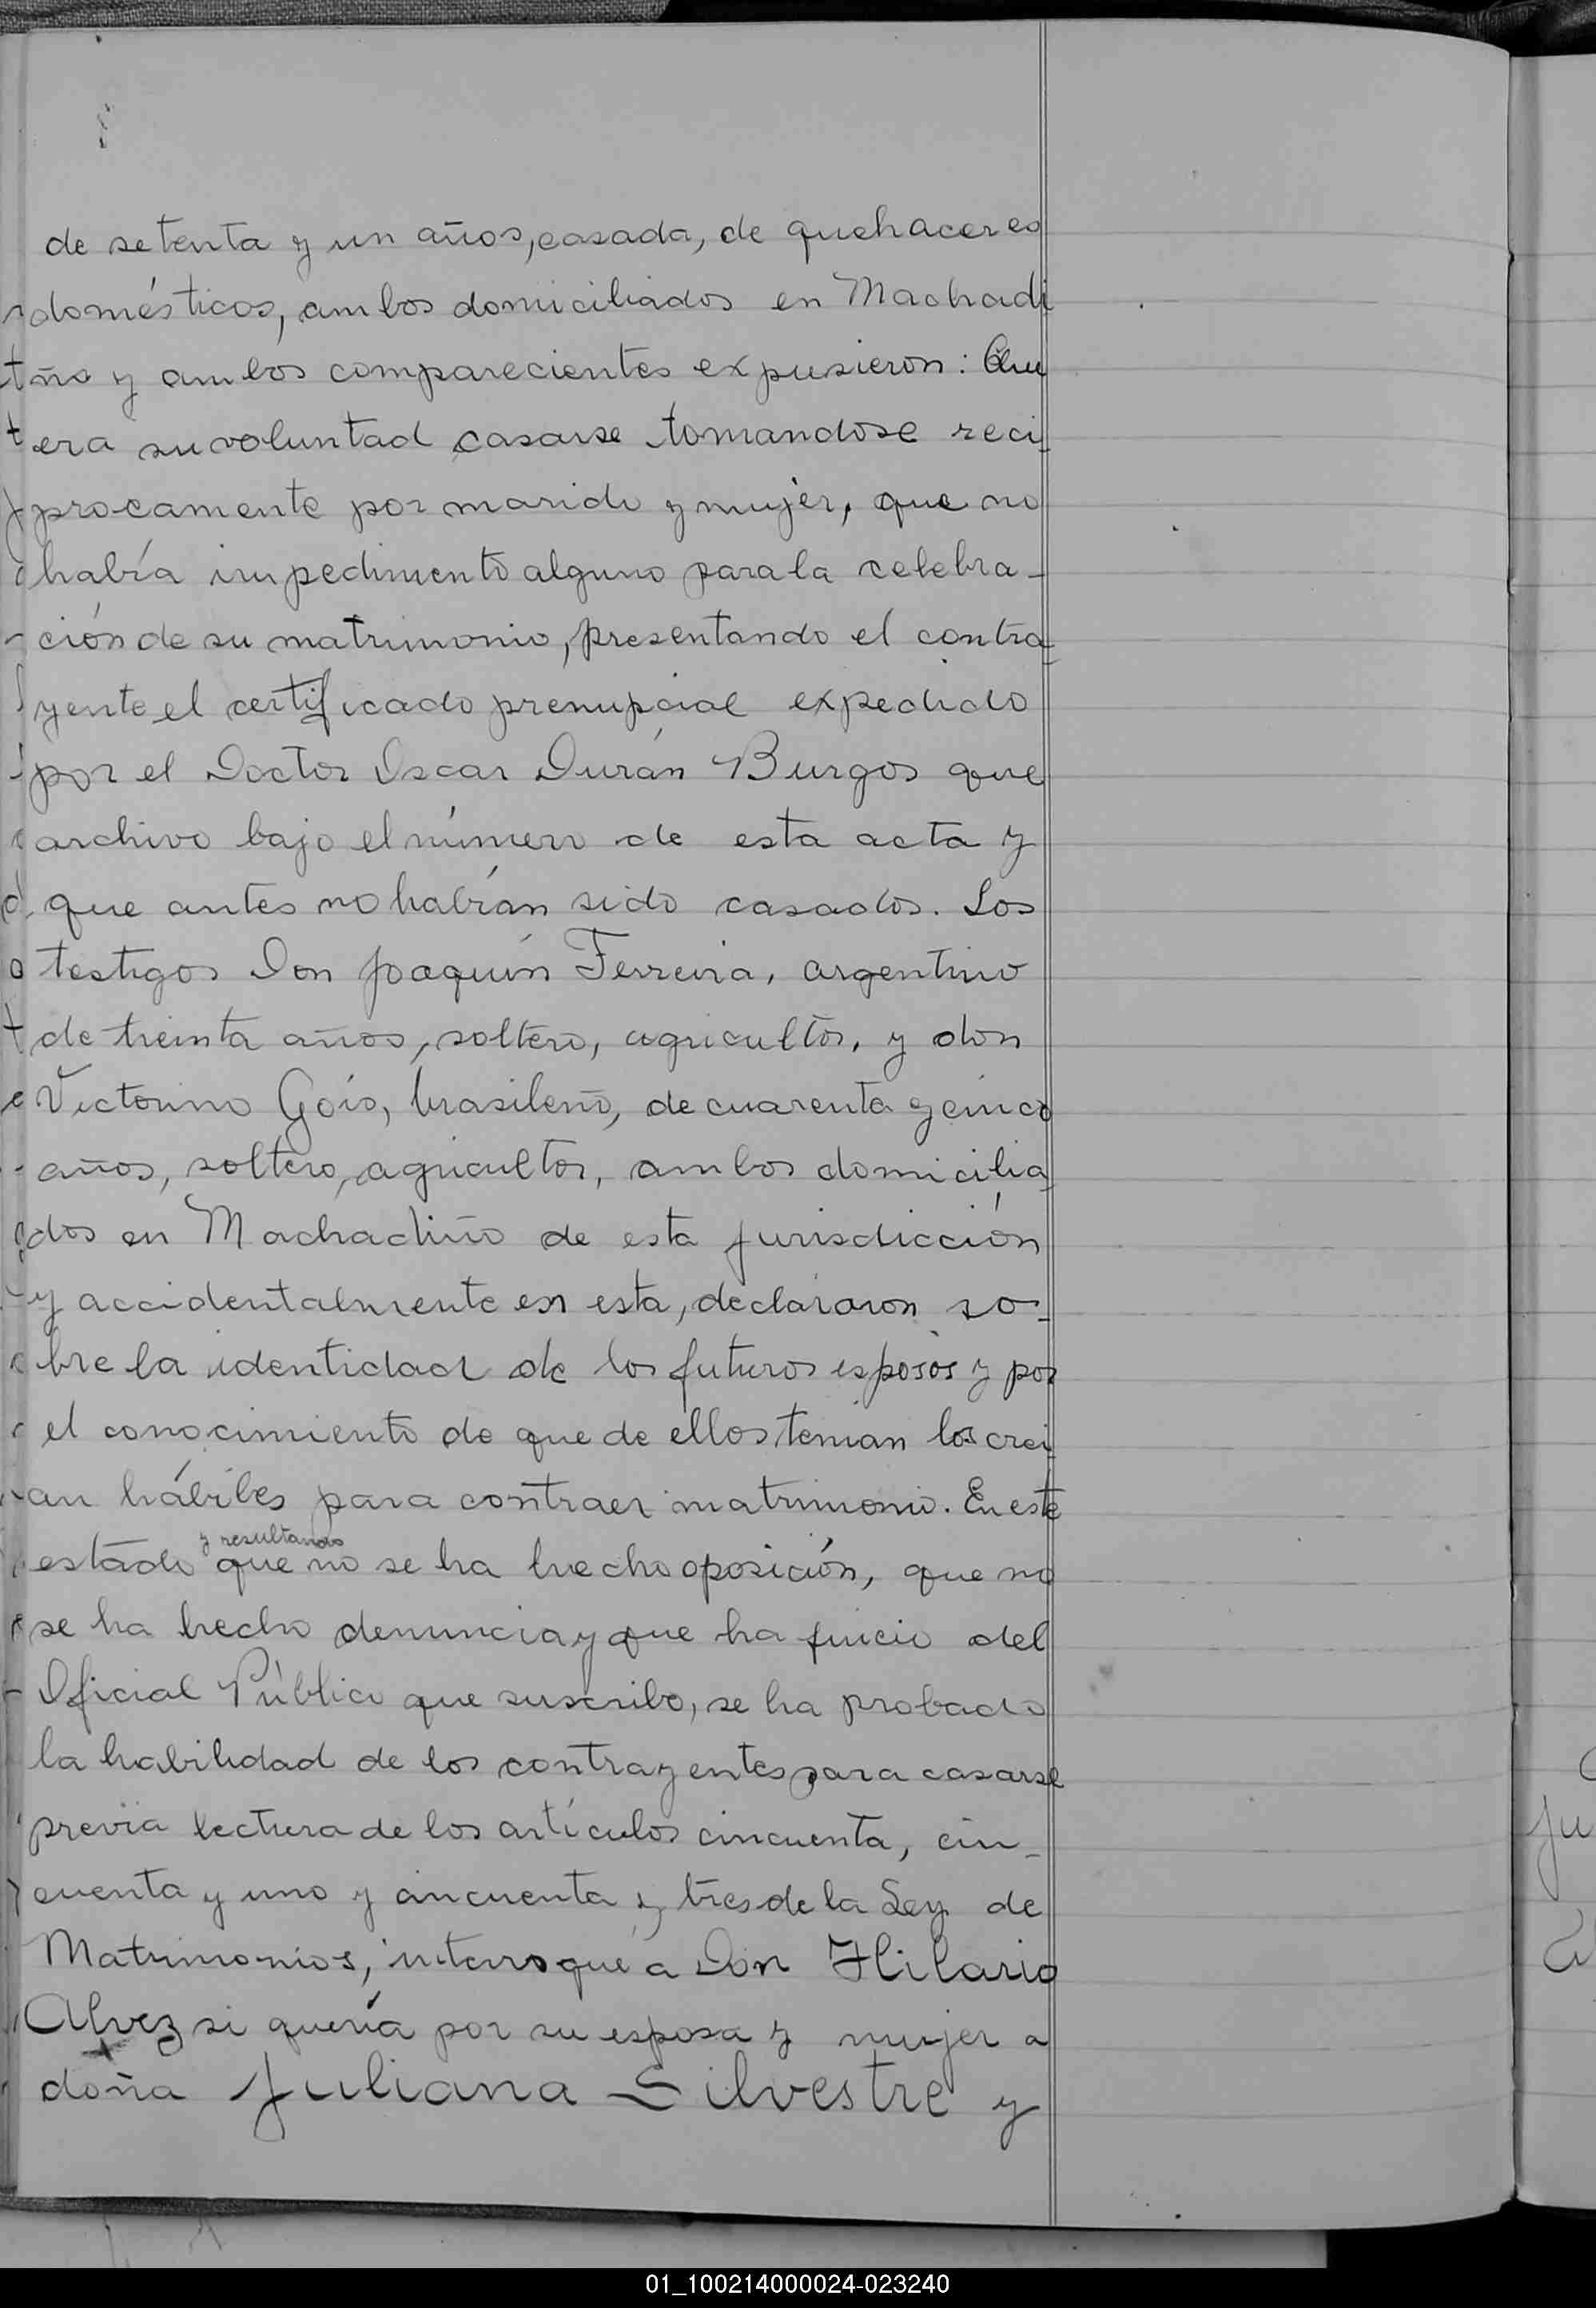 de setenta y un años, casada, de quehaceres
domésticos, ambos domiciliados en Machadi
ño y ambos comparecientes expusieron: Que
era su voluntad casarse tomandose reci
procamente por marido y mujer, que no
había impedimento alguno para la celebra-
ción de su matrimonio, presentando el contra
yente el certificado prenupcial expedido
por el Doctor Oscar Durán Burgos que
archivo bajo el número de esta acta y
que antes no habían sido casados. Los
testigos Don Joaquín Ferreira, argentino
de treinta años, soltero, agricultor, y don
Victorino Gois, brasileño, de cuarenta y cinco
años, soltero, agricultor, ambos domicilia
dos en Machadiño de esta jurisdicción
y accidentalmente en esta, declararon so-
bre la identidad de los futuros esposos y por
el conocimiento de que de ellos tenian los crei
an hábiles para contraer matrimonio. En este
y resultando
estado que no se ha hecho oposición, que no
se ha hecho denuncia y que ha juicio del
Oficial Público que suscribo, se ha probado
la habilidad de los contrayentes para casarse
previa lectura de los artículos cincuenta, cin-
cuenta y uno y cincuenta y tres de la Ley de
Matrimonios, interroqué a Don Hilario
Alvez si quería por su esposa y mujer a
doña Juliana Silvestre y
01_100214000024-023240